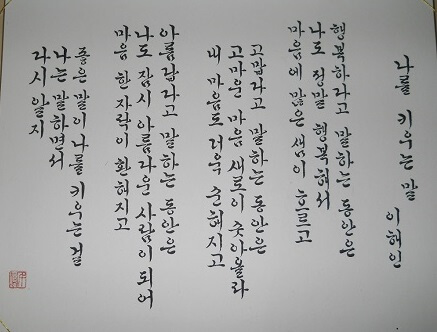 나를 키우는 말
이해인
행복하다고 말하는 동안은
나도 정말 행복해서
마음에 맑은 샘이 흐르고
고맙다고 말하는 동안은
고마운 마음 새로이 솟아올라
내 마음도 더욱 순해지고
아름답다고 말하는 동안은
나도 잠시 아름다운 사람이 되어
마음 한 자락이 환해지고
좋은 말이 나를 키우는 걸
나는 말하면서
다시 알지